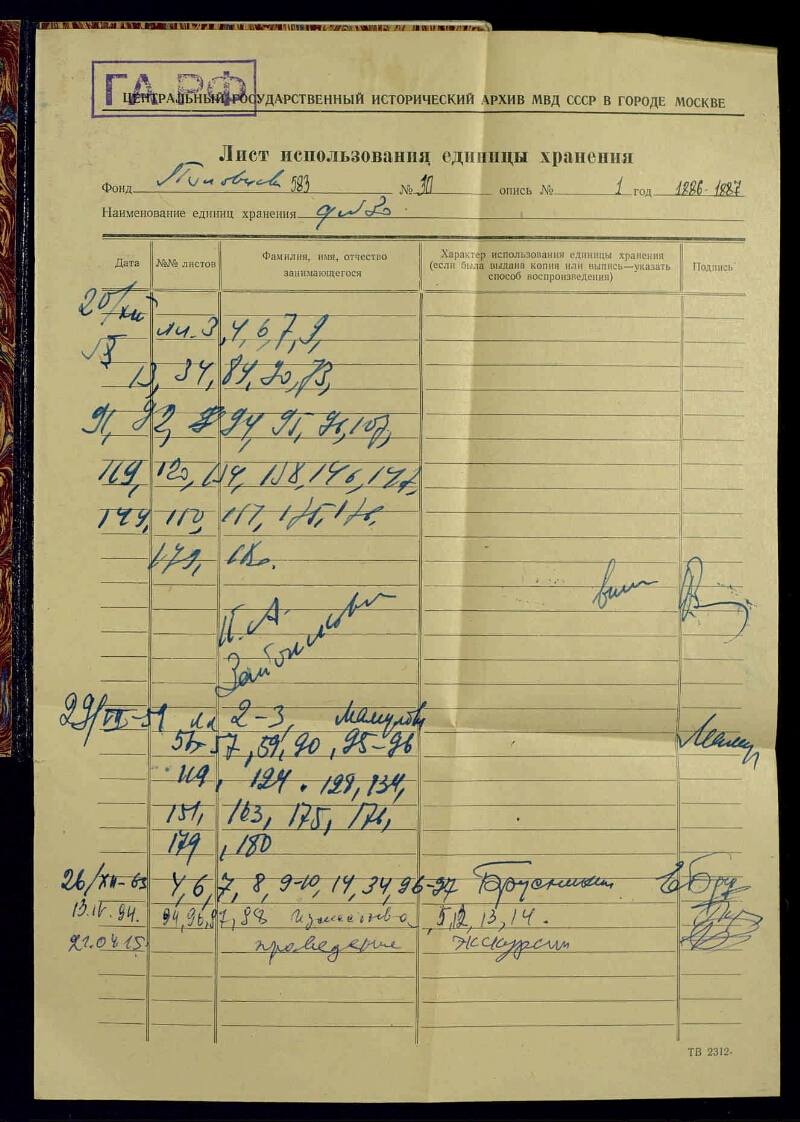 ГА РФ
ЦЕНТРАЛЬНЫЙ ГОСУДАРСТВЕННЫЙ ИСТОРИЧЕСКИЙ АРХИВ МВД СССР В ГОРОДЕ МОСКВЕ
Лист использования единицы хранения
Фонд Половцева 583 № 30 опись № 1 год 1886-1887
Наименование единиц хранения д № 30
Дата №№ листов Фамилия, имя, отчество занимающегося Характер использования единицы хранения (если была выдана копия или выпись—указать способ воспроизведения) Подпись
20/XII лл. 3, 4, 6, 7, 9,
13, 34, 84, 90, 73,
91, 92, 94, 95, 96, 107,
119, 120, 154, 158, 146, 147,
149, 150, 151, 175, 176,
179, 180.
П. А.
Зайончковский
29/VII-59 лл 2-3,
56-57, 59, 90, 95-96
119, 124, 128, 134,
151, 163, 175, 176,
179, 180
26/XII-63 4, 6, 7, 8, 9-10, 14, 34, 96-97
13.IV.94. 94, 96, 97, 98 , 5, 12, 13, 14.
21.04.15 проведение экскурсии
ТВ 2312-